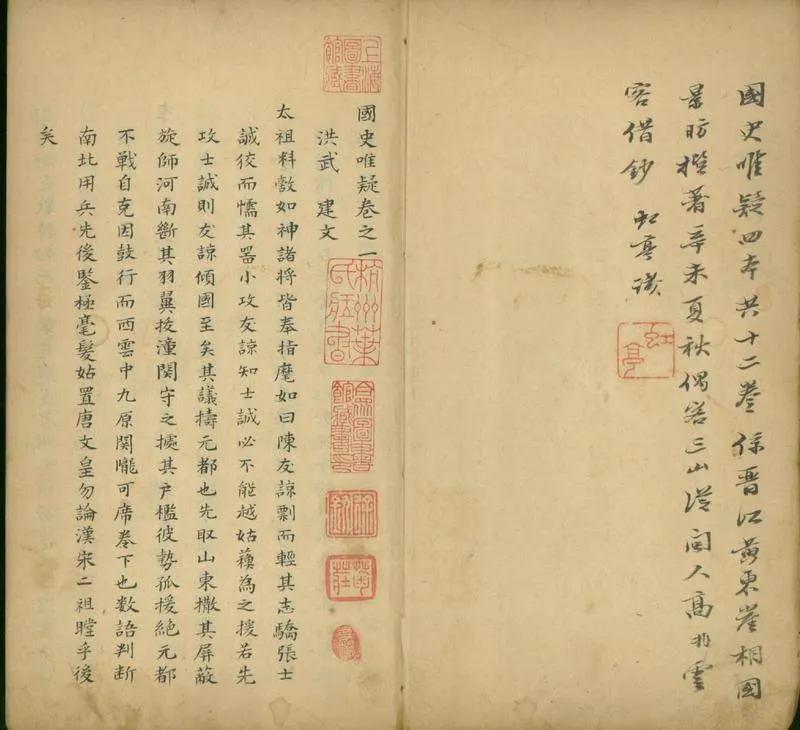 國史唯疑四本共十二卷係晉江黃東崖相國
景昉所著辛未夏秋偶客三山從閩人高兆雲
客借鈔 虹亭識
虹亭
上海圖書館藏
國史唯疑卷之一
杭州葉氏藏書
洪武 建文
太祖料敵如神諸將皆奉指麾如曰陳友諒剽而輕其志驕張士
誠狡而懦其器小攻友諒知士誠必不能越姑蘓為之援若先
攻士誠則友諒傾國至矣其議擣元都也先取山東撤其屏蔽
旋師河南斷其羽翼拔潼関守之據其户檻彼勢孤援絕元都
不戰自克因鼓行而西雲中九原関隴可席卷下也数語判断
南北用兵先後鑒極毫髮姑置唐文皇勿論漢宋二祖瞠乎後
矣